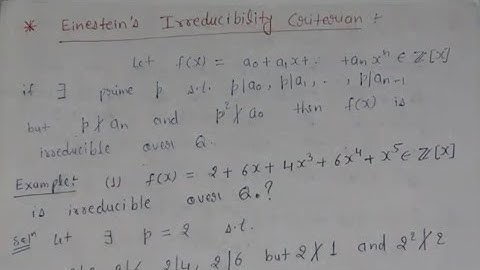 * Einestein's Irreducibility Criterian :
let f(x) = a0 + a1x + . +an x^n ∈ Z[x]
if ∃ prime p s.t. p|a0, p|a1, . , p|an-1
but p∤an and p²∤a0 then f(x) is
irreducible over Q.
Example:- (1) f(x) = 2 + 6x + 4x³ + 6x⁴ + x⁵ ∈ Z[x]
is irreducible over Q.?
Solⁿ let ∃ p = 2 s.t.
2|4, 2|6 but 2∤1 and 2²∤2